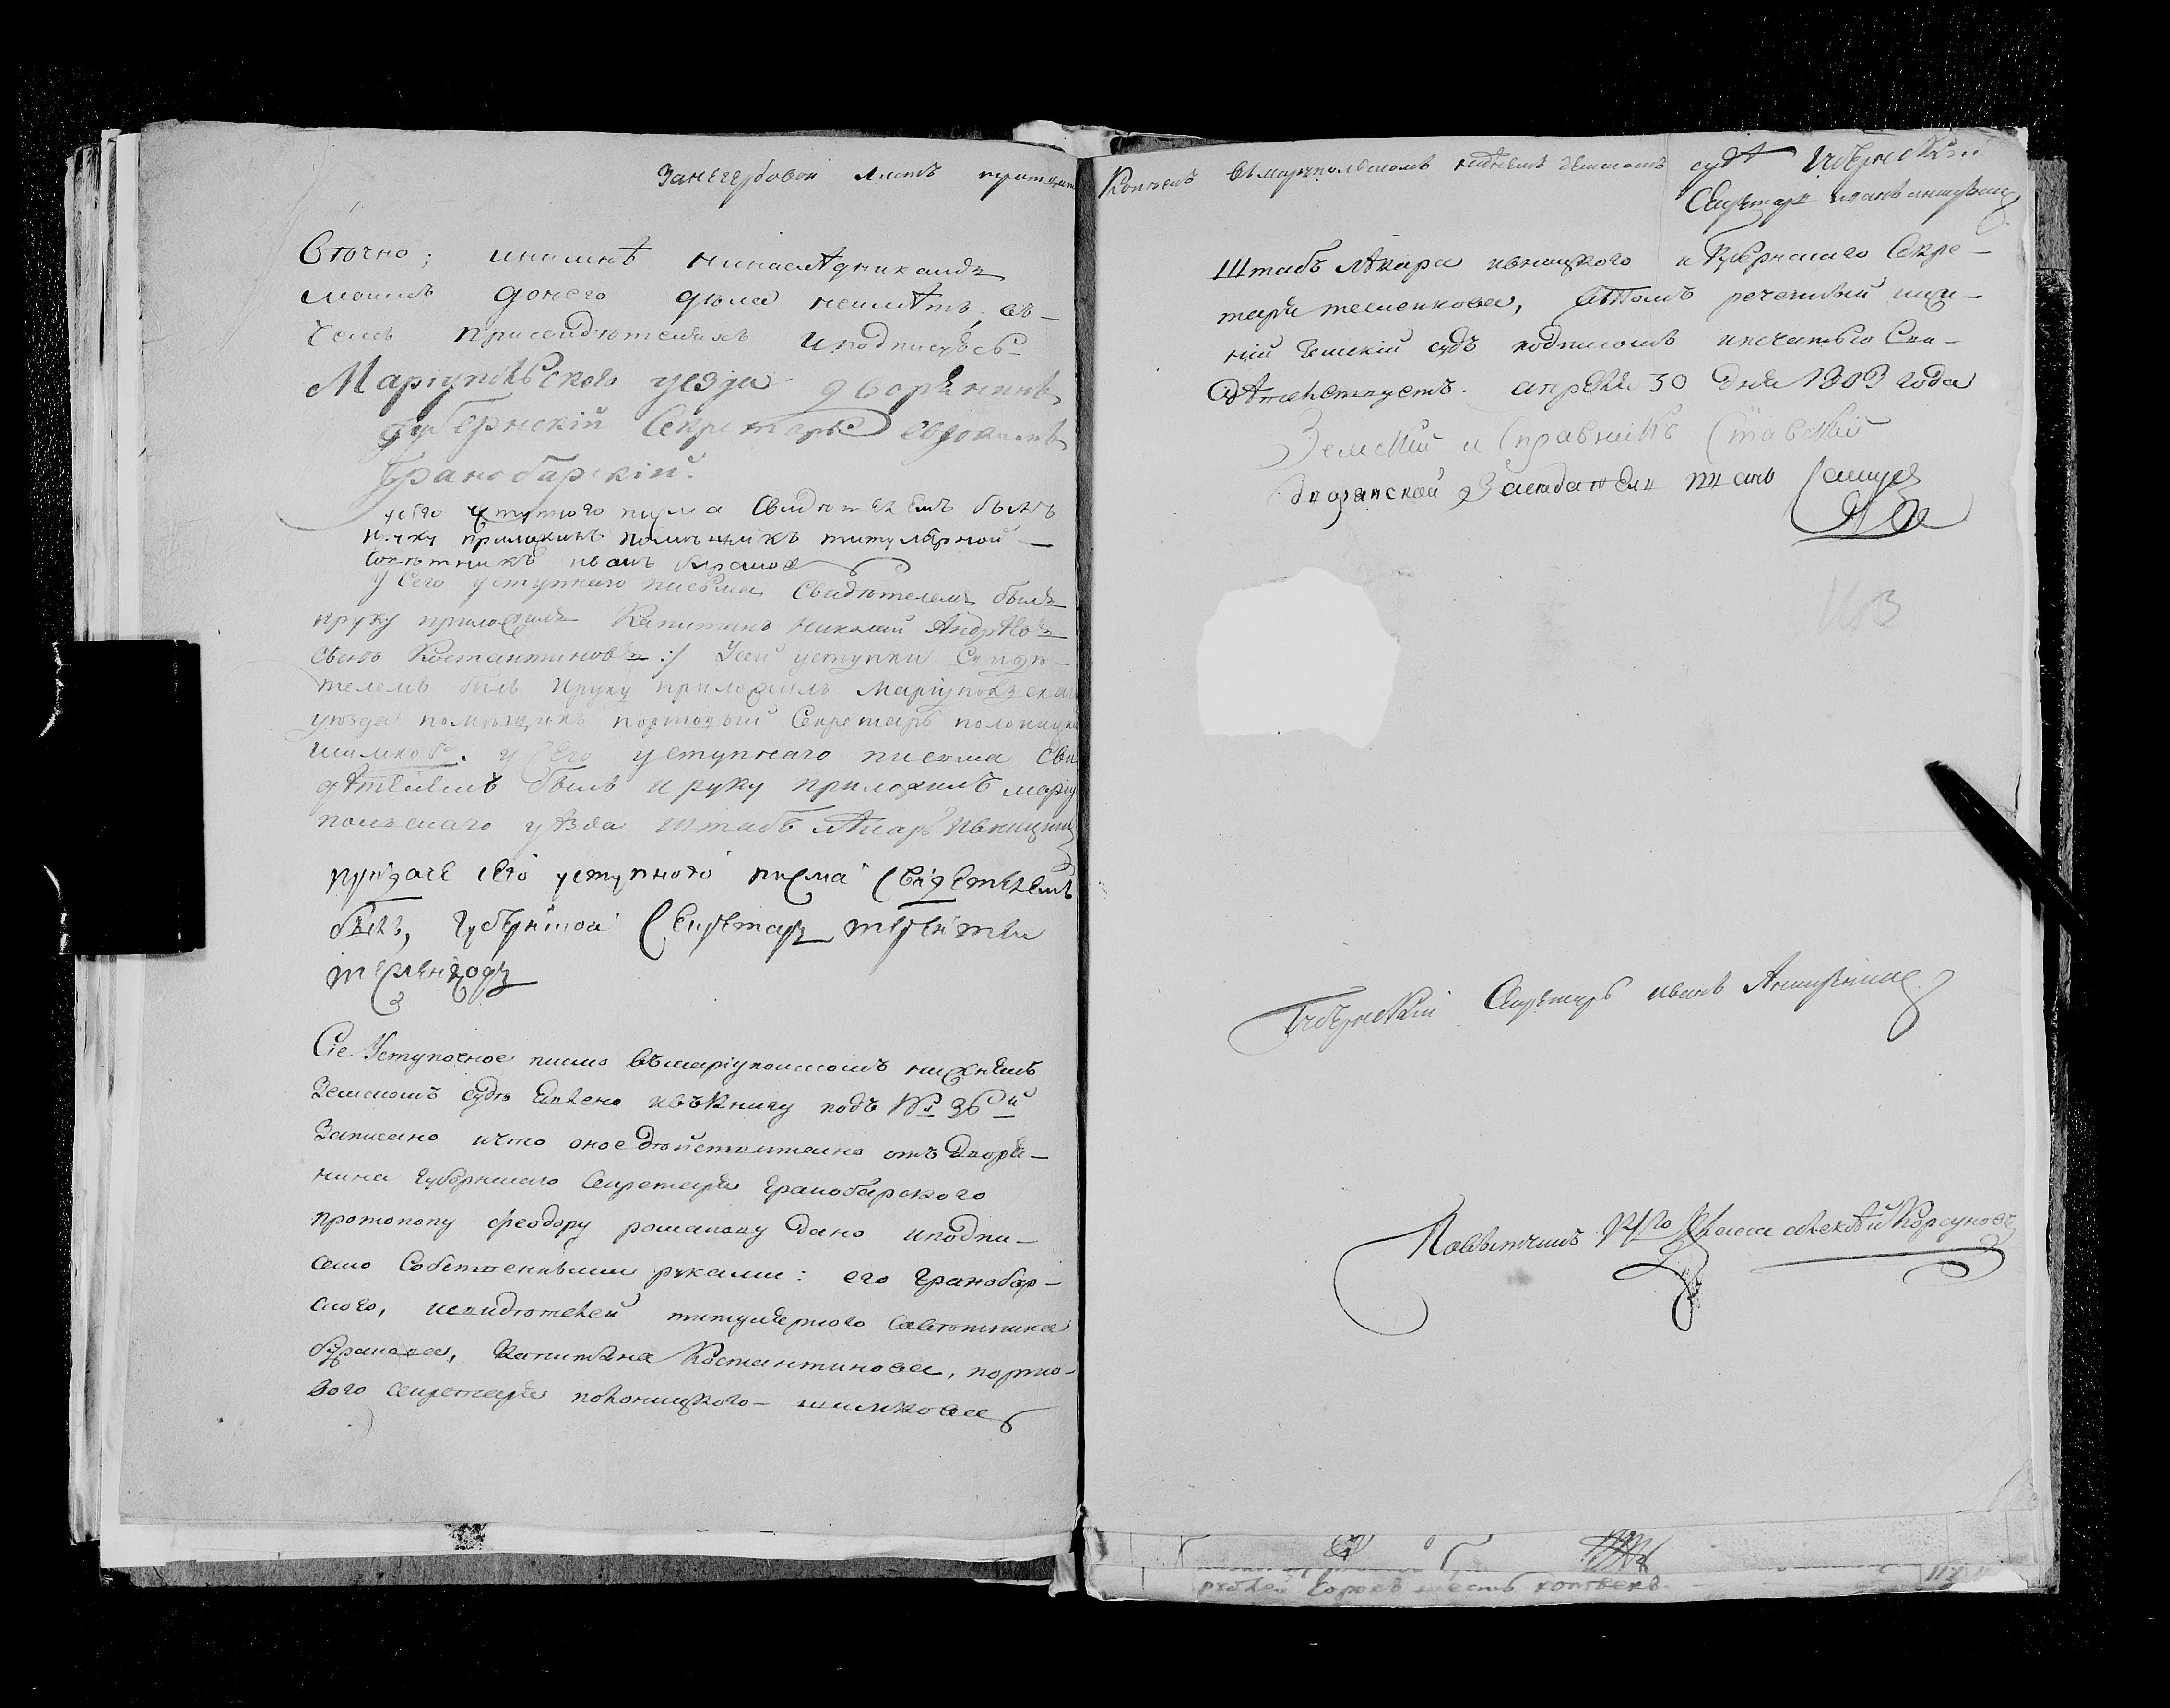 Занегербовой листъ
вточно; инимнѣ нинаслѣдникамъ
моимъ донего дѣла неимѣть, въ-
чемъ присвидѣтеляхъ иподписуюсь
Маріупольского уезда дворянинъ
губернскій Секретарь Евдокимъ
Гранобарскій.
усего уступного писма Свидѣтелемъ былъ
и руку приложилъ помѣщикъ титулярной
Совѣтникъ иванъ
у сего уступнаго писма Свидѣтелемъ былъ
ируку приложилъ Капитанъ Николай Андрѣевъ
сынъ Костантиновъ :/ Усей уступки Свидѣ-
телемъ былъ Ируку приложилъ Маріупольскаго
уѣзда помѣщикъ портовый Секретарь полоницкий
шимковъ. у сего уступнаго писма Сви
дѣтелемъ былъ и руку приложилъ маріу
польскаго уѣзда штабъ лѣкарь Ивницкий
придаче сего уступного писма Свидетелемъ
былъ, губернской Секретарь терентей
тесленковъ
Сіе Уступочное писмо въмаріупольскомъ нижнемъ
Земскомъ судѣ явлено ивъкнигу подъ № 36й
Записано ичто оное дѣйствительно отъ Дворя-
нина губернскаго Секретаря Гранобарского
протопопу феодору романову дано иподпи-
сано Собственными руками: его Гранобар-
ского, исвидѣтелей титулярного Совѣтника
капитана Костантинова, порто-
вого секретаря полоницкого- шимкова
вмаріупольскомъ нижнемъ земскомъ судѣ Губернский
Секретарь иванъ
Штабъ лѣкаря ивницкого иГубернскаго Секре-
таря тесленкова, Вътомъ реченный ниж-
ній Земскій судъ подписомъ ипечатью Сви-
дѣтельствуетъ. апреля 30 дня 1803 года
Земский исправникъ Ставский
дворянской Засѣдатель
Губернский Секретарь иванъ
Повытчикъ 14го Класса алексѣй Корсуновъ
рублей Сорокъ шесть копѣекъ.